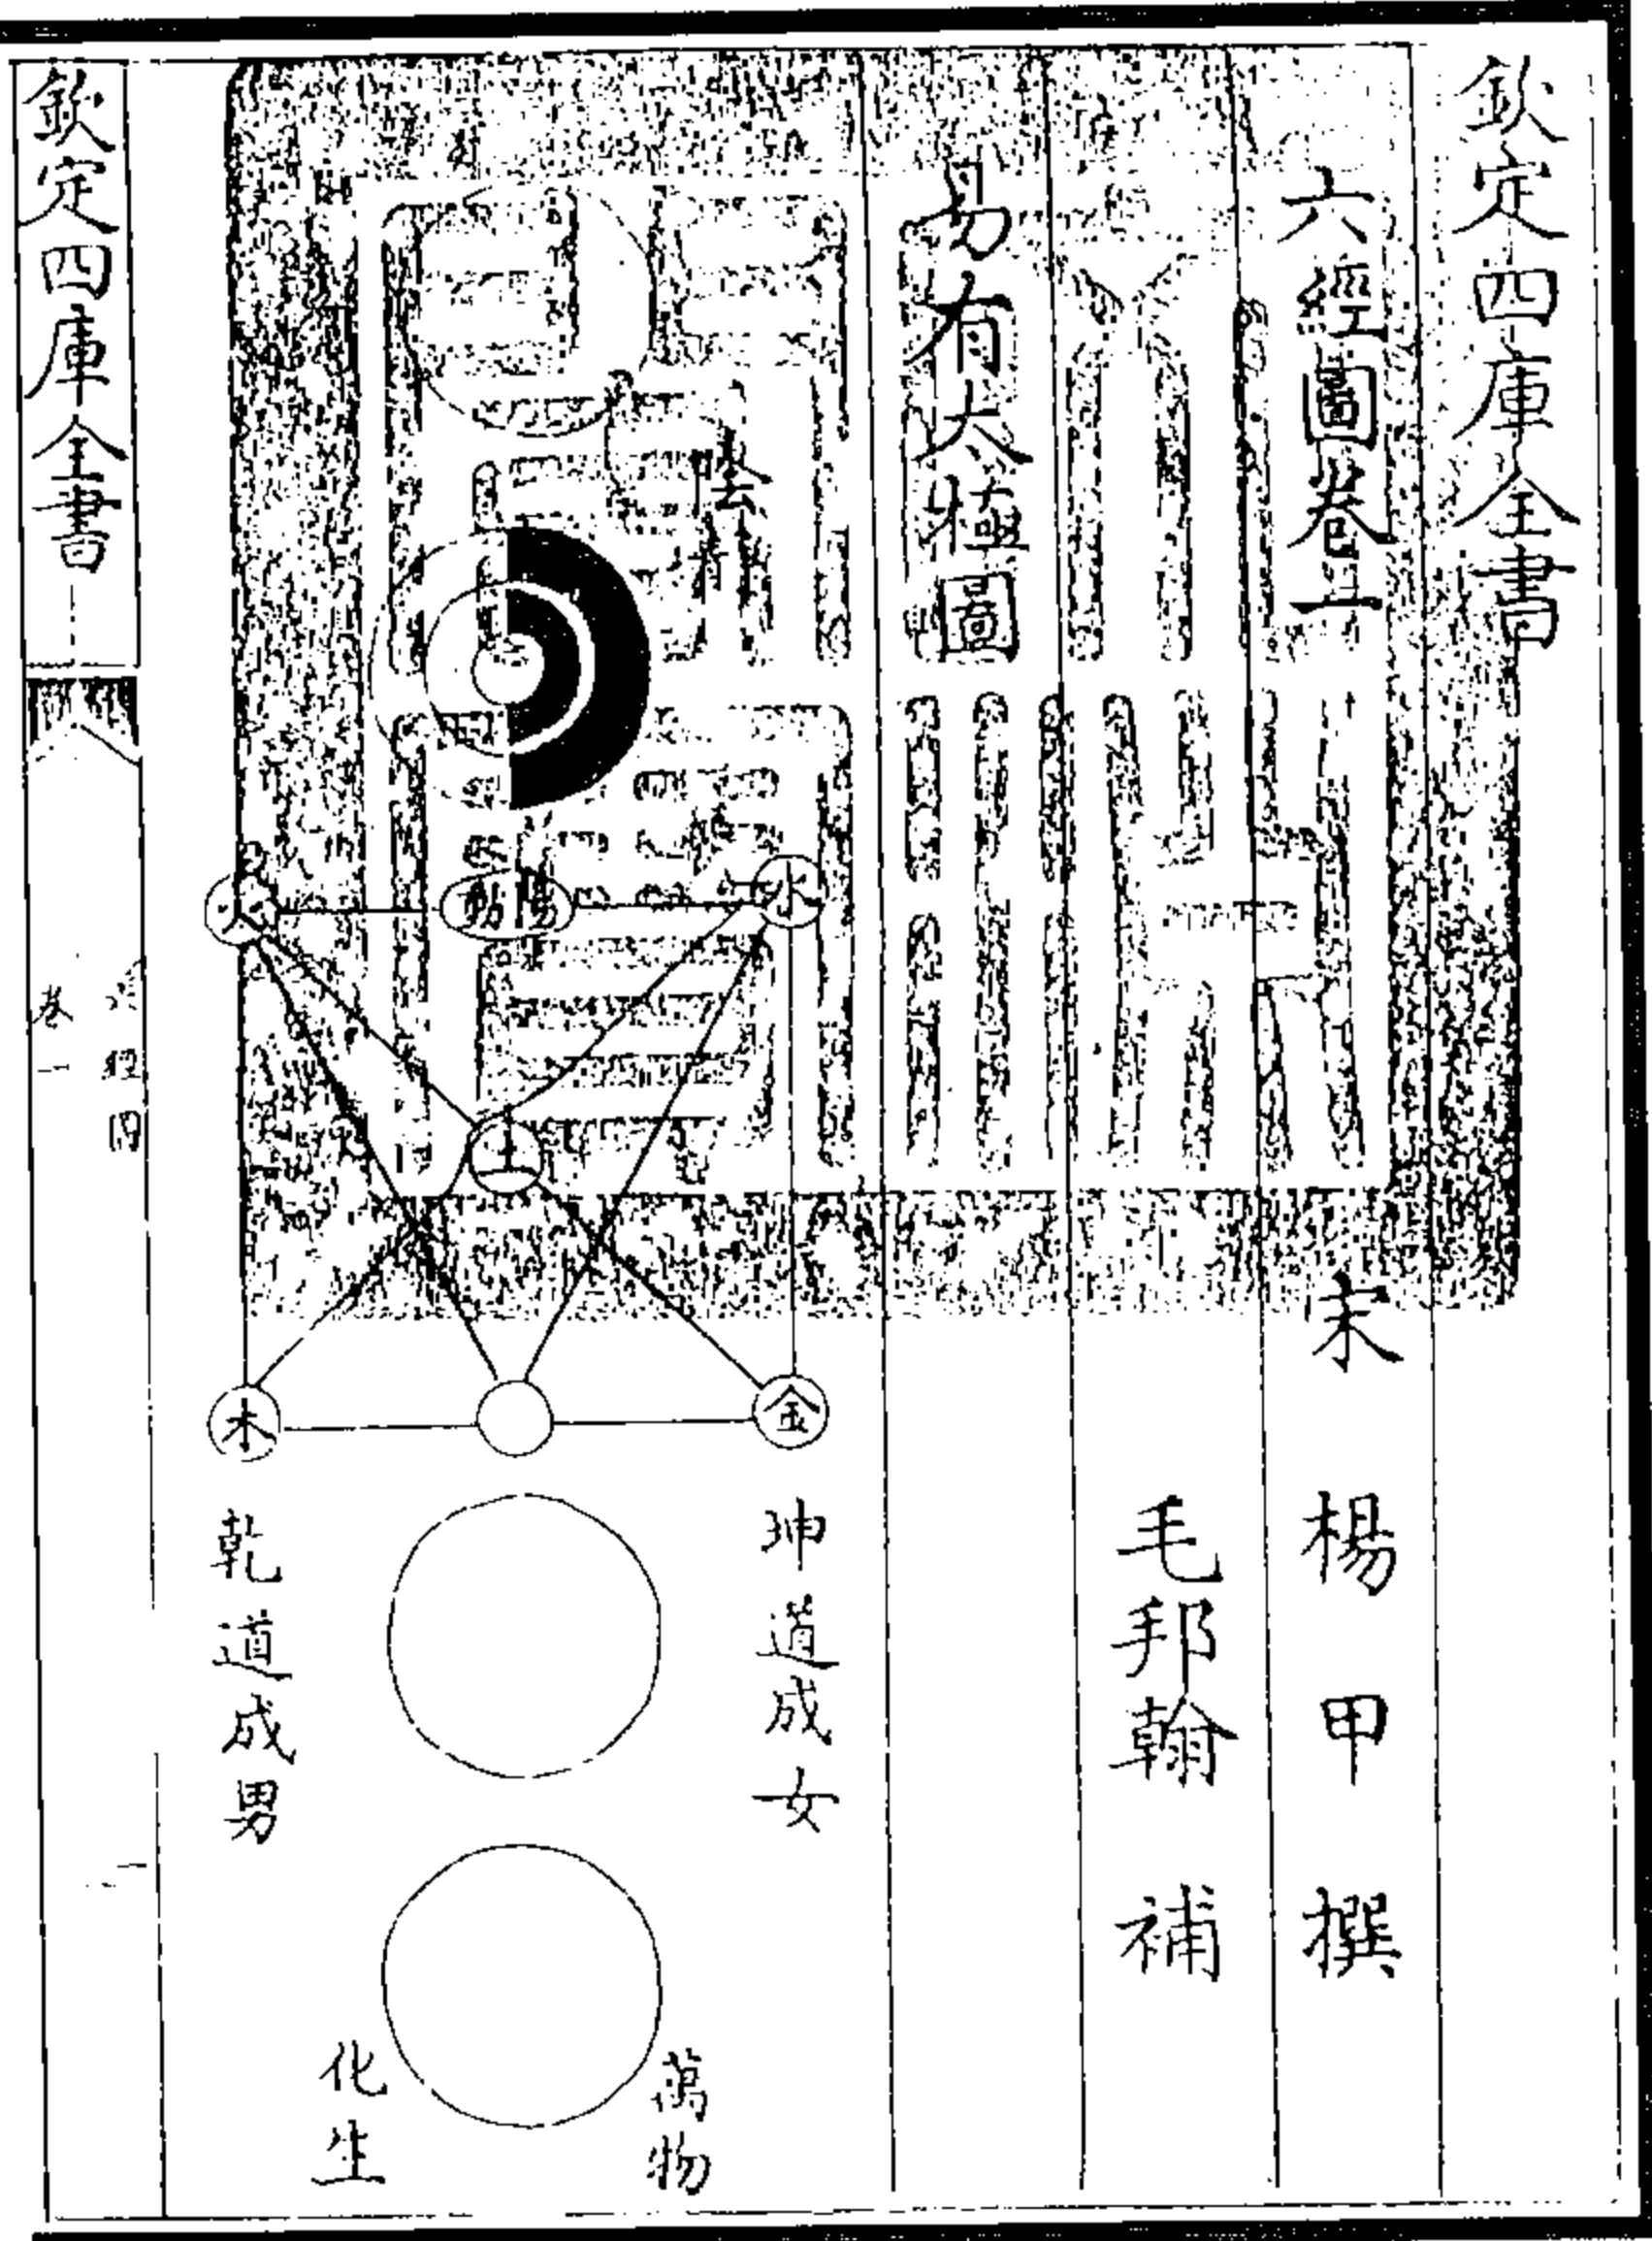 欽定四庫全書
六經圖卷一
宋 楊 甲 撰
毛邦翰 補
易有太極圖
陰靜
陽動
水
火
土
金
木
坤道成女
乾道成男
萬物
化生
欽定四庫全書
六經圖
卷一
一